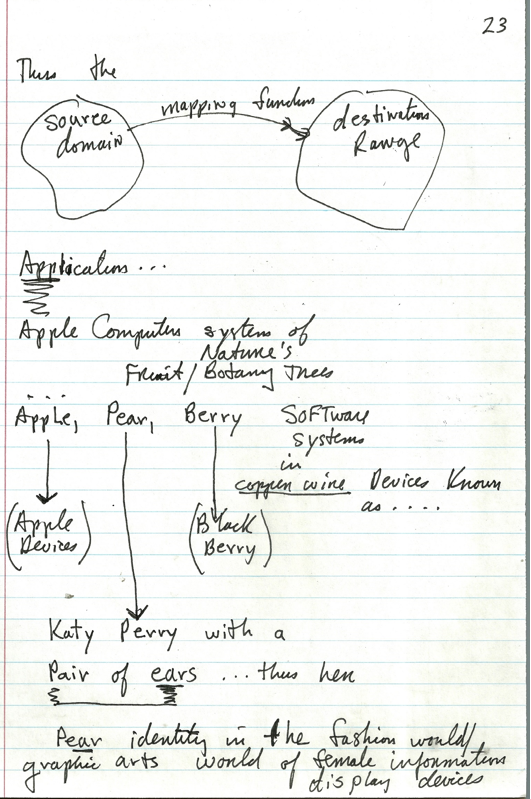 23
Thus the
source domain
mapping function
destination Range
Application...
Apple Computers system of
Nature's
Fruit / Botany Trees
Apple, Pear, Berry SOFTware
systems
in
copper wire Devices Known
as....
(Apple Devices)
(Black Berry)
Katy Perry with a
Pair of ears ... thus her
Pear identity in the fashion world/
graphic arts world of female informations
display devices